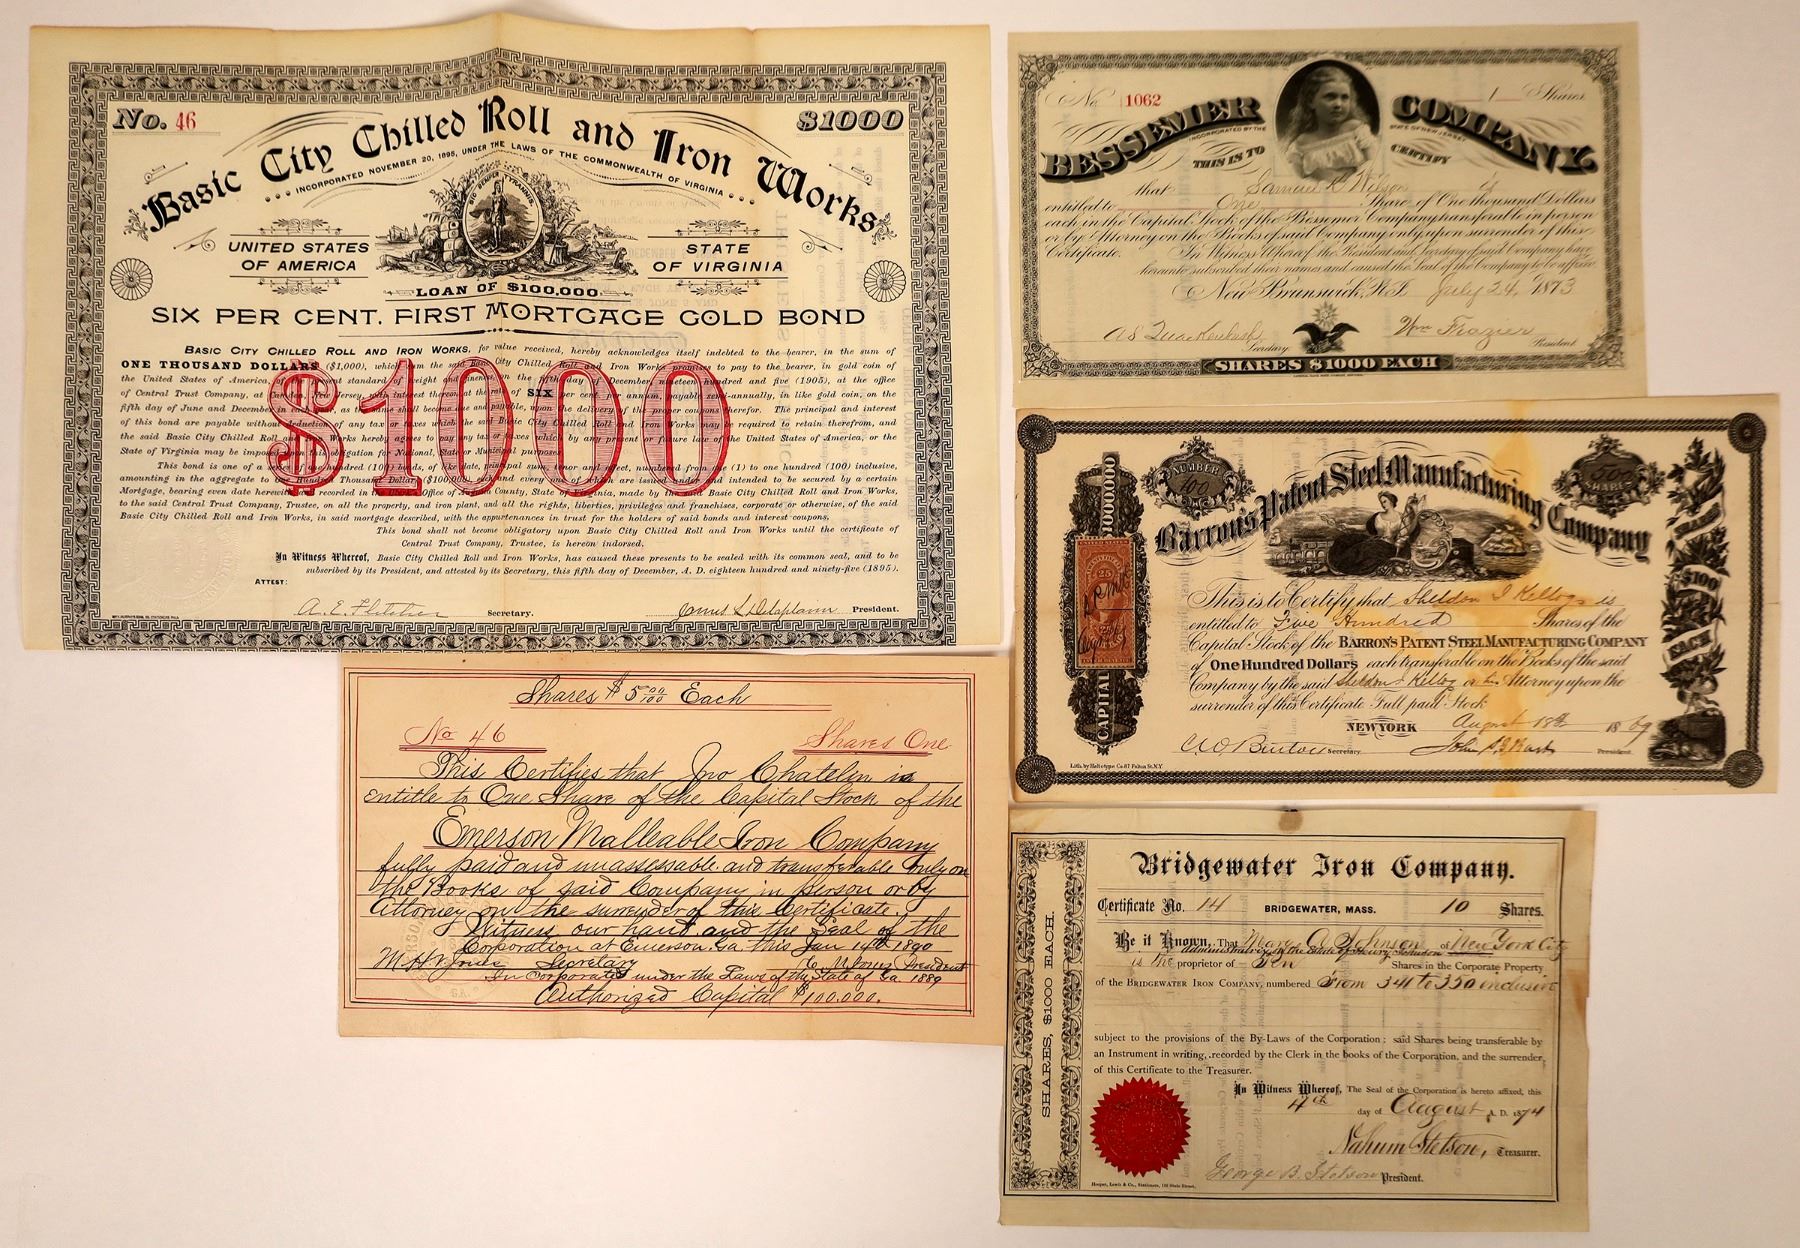 No. 46
$1000
Basic City Chilled Roll and Iron Works
INCORPORATED NOVEMBER 20, 1895, UNDER THE LAWS OF THE COMMONWEALTH OF VIRGINIA
SIC SEMPER TYRANNIS
UNITED STATES
OF AMERICA
STATE
OF VIRGINIA
LOAN OF $100,000
SIX PER CENT. FIRST MORTGAGE GOLD BOND
BASIC CITY CHILLED ROLL AND IRON WORKS, for value received, hereby acknowledges itself indebted to the bearer, in the sum of
ONE THOUSAND DOLLARS ($1,000), which sum the said Basic City Chilled Roll and Iron Works promises to pay to the bearer, in gold coin of
the United States of America, of present standard of weight and fineness on the fifth day of December nineteen hundred and five (1905), at the office
of Central Trust Company, at Camden, New Jersey, with interest thereon at the rate of SIX per cent. per annum, payable semi-annually, in like gold coin, on the
fifth day of June and December in each year, as the same shall become due and payable, upon the delivery of the proper coupons therefor. The principal and interest
of this bond are payable without deduction of any tax or taxes which the said Basic City Chilled Roll and Iron Works may be required to retain therefrom, and
the said Basic City Chilled Roll and Iron Works hereby agrees to pay any tax or taxes which by any present or future law of the United States of America, or the
State of Virginia may be imposed upon this obligation for National, State or Municipal purposes.
This bond is one of a series of one hundred (100) bonds, of like date, principal sum, tenor and effect, numbered from one (1) to one hundred (100) inclusive,
amounting in the aggregate to One Hundred Thousand Dollars ($100,000), each and every one of which are issued under and intended to be secured by a certain
Mortgage, bearing even date herewith and recorded in the Clerk's Office of Augusta County, State of Virginia, made by the said Basic City Chilled Roll and Iron Works,
to the said Central Trust Company, Trustee, on all the property, and iron plant, and all the rights, liberties, privileges and franchises, corporate or otherwise, of the said
Basic City Chilled Roll and Iron Works, in said mortgage described, with the appurtenances in trust for the holders of said bonds and interest coupons.
This bond shall not become obligatory upon Basic City Chilled Roll and Iron Works until the certificate of
Central Trust Company, Trustee, is hereon indorsed.
In Witness Whereof, Basic City Chilled Roll and Iron Works, has caused these presents to be sealed with its common seal, and to be
subscribed by its President, and attested by its Secretary, this fifth day of December, A. D. eighteen hundred and ninety-five (1895).
$1000
ATTEST:
A. E. Fletcher Secretary.
President.
No 1062
1 Shares
BESSEMER COMPANY.
INCORPORATED BY THE STATE OF NEW JERSEY
THIS IS TO CERTIFY
that Samuel K Wilson is
entitled to One Share of One thousand Dollars
each in the Capital Stock of the Bessemer Company transferable in person
or by Attorney on the Books of said Company only upon surrender of this
Certificate. In Witness Whereof the President and Secretary of said Company have
hereunto subscribed their names and caused the Seal of the Company to be affixed
New Brunswick, N.J. July 24, 1873
A S Quackenbush Secretary
Wm Frazier President
SHARES $1000 EACH
NUMBER
100
500
SHARES
Barron's Patent Steel Manufacturing Company
CAPITAL 1000000
UNITED STATES
25
SHARES $100 EACH
This is to Certify that Sheldon I Kellogg is
entitled to Five Hundred Shares of the
Capital Stock of the BARRON'S PATENT STEEL MANUFACTURING COMPANY
of One Hundred Dollars each transferable on the Books of the said
Company by the said Sheldon I Kellogg or his Attorney upon the
surrender of this Certificate Full paid Stock
NEW YORK August 18th 1869
Secretary
President
Lith. by Heliotype Co. 87 Fulton St. N.Y.
Shares $5 00/100 Each
No 46
Shares One
This Certifies that Jno Chatelin is
entitle to One Share of the Capital Stock of the
Emerson Malleable Iron Company
fully paid and unassessable and transferable only on
the Books of said Company in person or by
Attorney on the surrender of this Certificate.
Witness our hand and the Seal of the
Corporation at Emerson Ga. this Jan 14th 1890
Secretary
President
Incorporated under the Laws of the State of Ga. 1889
Authorized Capital $100.000.
Bridgewater Iron Company.
Certificate No. 14 BRIDGEWATER, MASS. 10 Shares.
Be it Known, That Mary A Johnson of New York City
Administratrix on the Estate of Henry Johnson
is the proprietor of Ten Shares in the Corporate Property
of the BRIDGEWATER IRON COMPANY, numbered From 341 to 350 inclusive
subject to the provisions of the By-Laws of the Corporation; said Shares being transferable by
an Instrument in writing, recorded by the Clerk in the books of the Corporation, and the surrender
of this Certificate to the Treasurer.
In Witness Whereof, The Seal of the Corporation is hereto affixed, this
4th day of August A. D. 1874
Nahum Stetson, Treasurer.
George B. Stetson President.
SHARES, $1000 EACH.
Hooper, Lewis & Co., Stationers, 122 State Street.